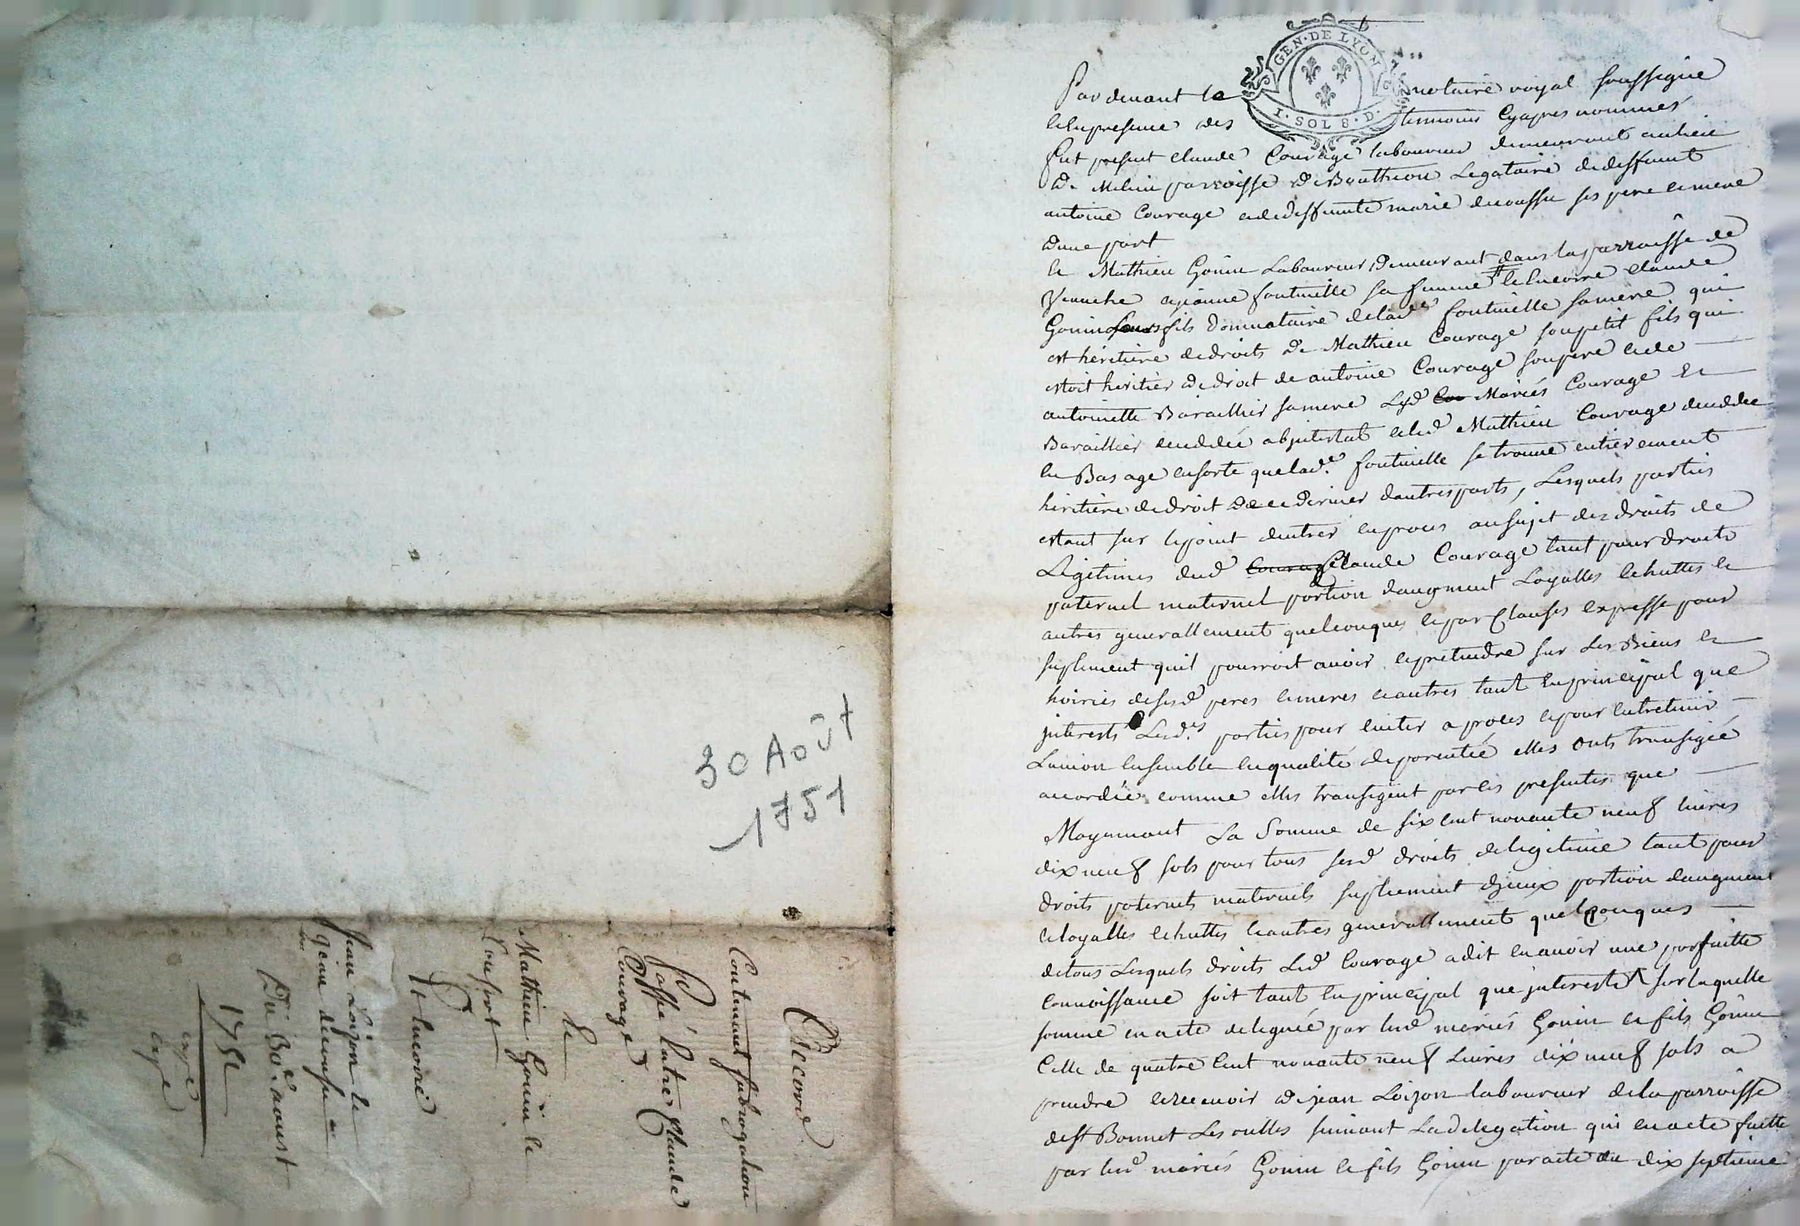 30 Août
1751
Accord
Contenant subrogation
Passé entre Claude
Courage
Et
Mathieu Gonin le
Consort
Et encore
Jean Loizon le
jean
Du 30e. aoust
1751
GEN·DE LYON
1·SOL 8·D·
Par devant le notaire royal soussigné
et en presence des temoins cyapres nommés
fut present claude Courage laboureur demeurant au lieu
de parroisse de Bouthéon Legataire de deffunt
antoine Courage et de deffunte marie ses pere et mere
dune part
et Mathieu Gonin Laboureur demeurant dans la parroisse de
et jeanne fontneille sa femme et encore claude
Gonin fils donnataire de lade fontneille sa mere qui
est héritiere de droits de Mathieu Courage son petit fils qui
estoit heritier de droit de antoine Courage son pere et de
antoinette Baraillier sa mere Lesd Mariés Courage et
Baraillier decedés abjntestat et led Mathieu Courage decedé
en Bas age ensorte que lade. fontneille se trouve entierement
héritiere de droit de ce dernier dautres parts, Lesquels parties
estant sur le point dentrer en proces au sujet des droits de
Legitimes dud Courage Claude Courage tant pour droits
paternel maternel portion daugment Loyalles echuttes et
autres generallement quelconques et par Clauses expresse pour
suplement quil pourroit avoir et pretendre sur Les Biens et
hoiries de sesd peres et meres et autres tant en principal que
jnterests Lesd.es parties pour eviter a proces et pour entretenir
Lunion ensemble en qualité de parentée elles onts transigée
accordée comme elles transigent par les presentes que
Moyennant La Somme de six cent nonante neuf livres
dix neuf sols pour tous sesd droits de legitime tant pour
droits paternels maternels suplement diceux portion daugment
et loyalles echuttes et autres generallement quelconques
de tous Lesquels droits Led Courage a dit en avoir une parfaitte
connoissance soit tant en principal que jnterests sur laquelle
somme en a eté deleguée par lesd mariés Gonin et fils Gonin
Celle de quatre cent nonante neuf Livres dix neuf sols a
prendre et recevoir de jean Loizon laboureur de la parroisse
de st Bonnet Les oulles suivant La delegation qui en a eté faitte
par lesd mariés Gonin et fils Gonin par acte du dix septieme